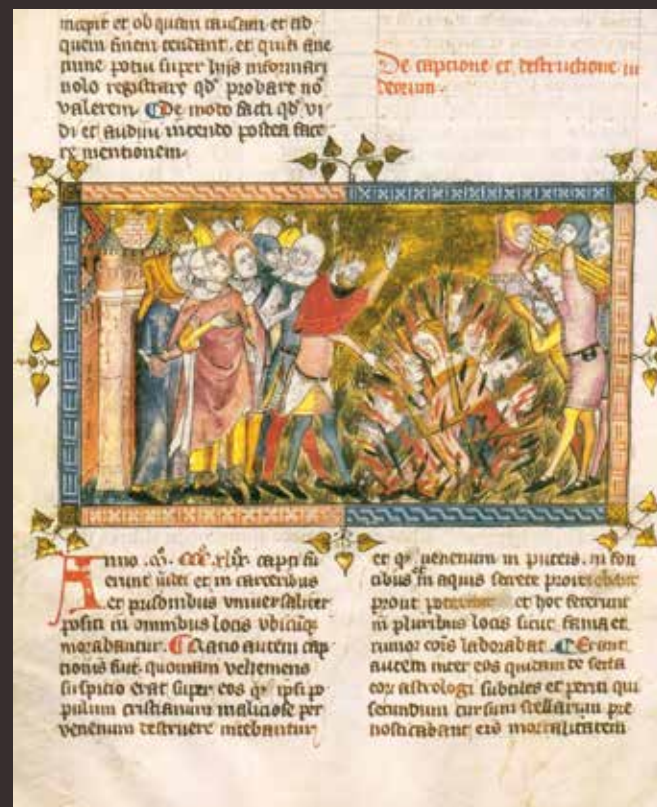 incepit et ob quam causam et ad
quem finem tendant. et quia ane
nune potui super hijs informari
nolo registrare qd' probare no
valerem. De moto facti qd' vi
di et audiui intendo postea face
re mentionem.
De captione et destructione iu
deorum.
Anno .m. ccc. xlix. capti fu
erunt iudei et in carceribus
et prisonibus vniuersaliter
positi in omnibus locis vbicuq
morabantur. Ratio autem cap
tionis fuit. quoniam vehemens
suspitio erat super eos qd' ipsi po
pulum cristianum maliciose per
venenum destruere intebantur
et qd' uenenum in puteis. in fon
tibus et in aquis secrete
prout et hoc fecerunt
in pluribus locis sicut fama et
rumor cois laborabat. Erant
autem inter eos quidam de secta
eor astrologi subtiles et periti qui
secundum cursum stellarum pre
nosticabant eis mortalitatem